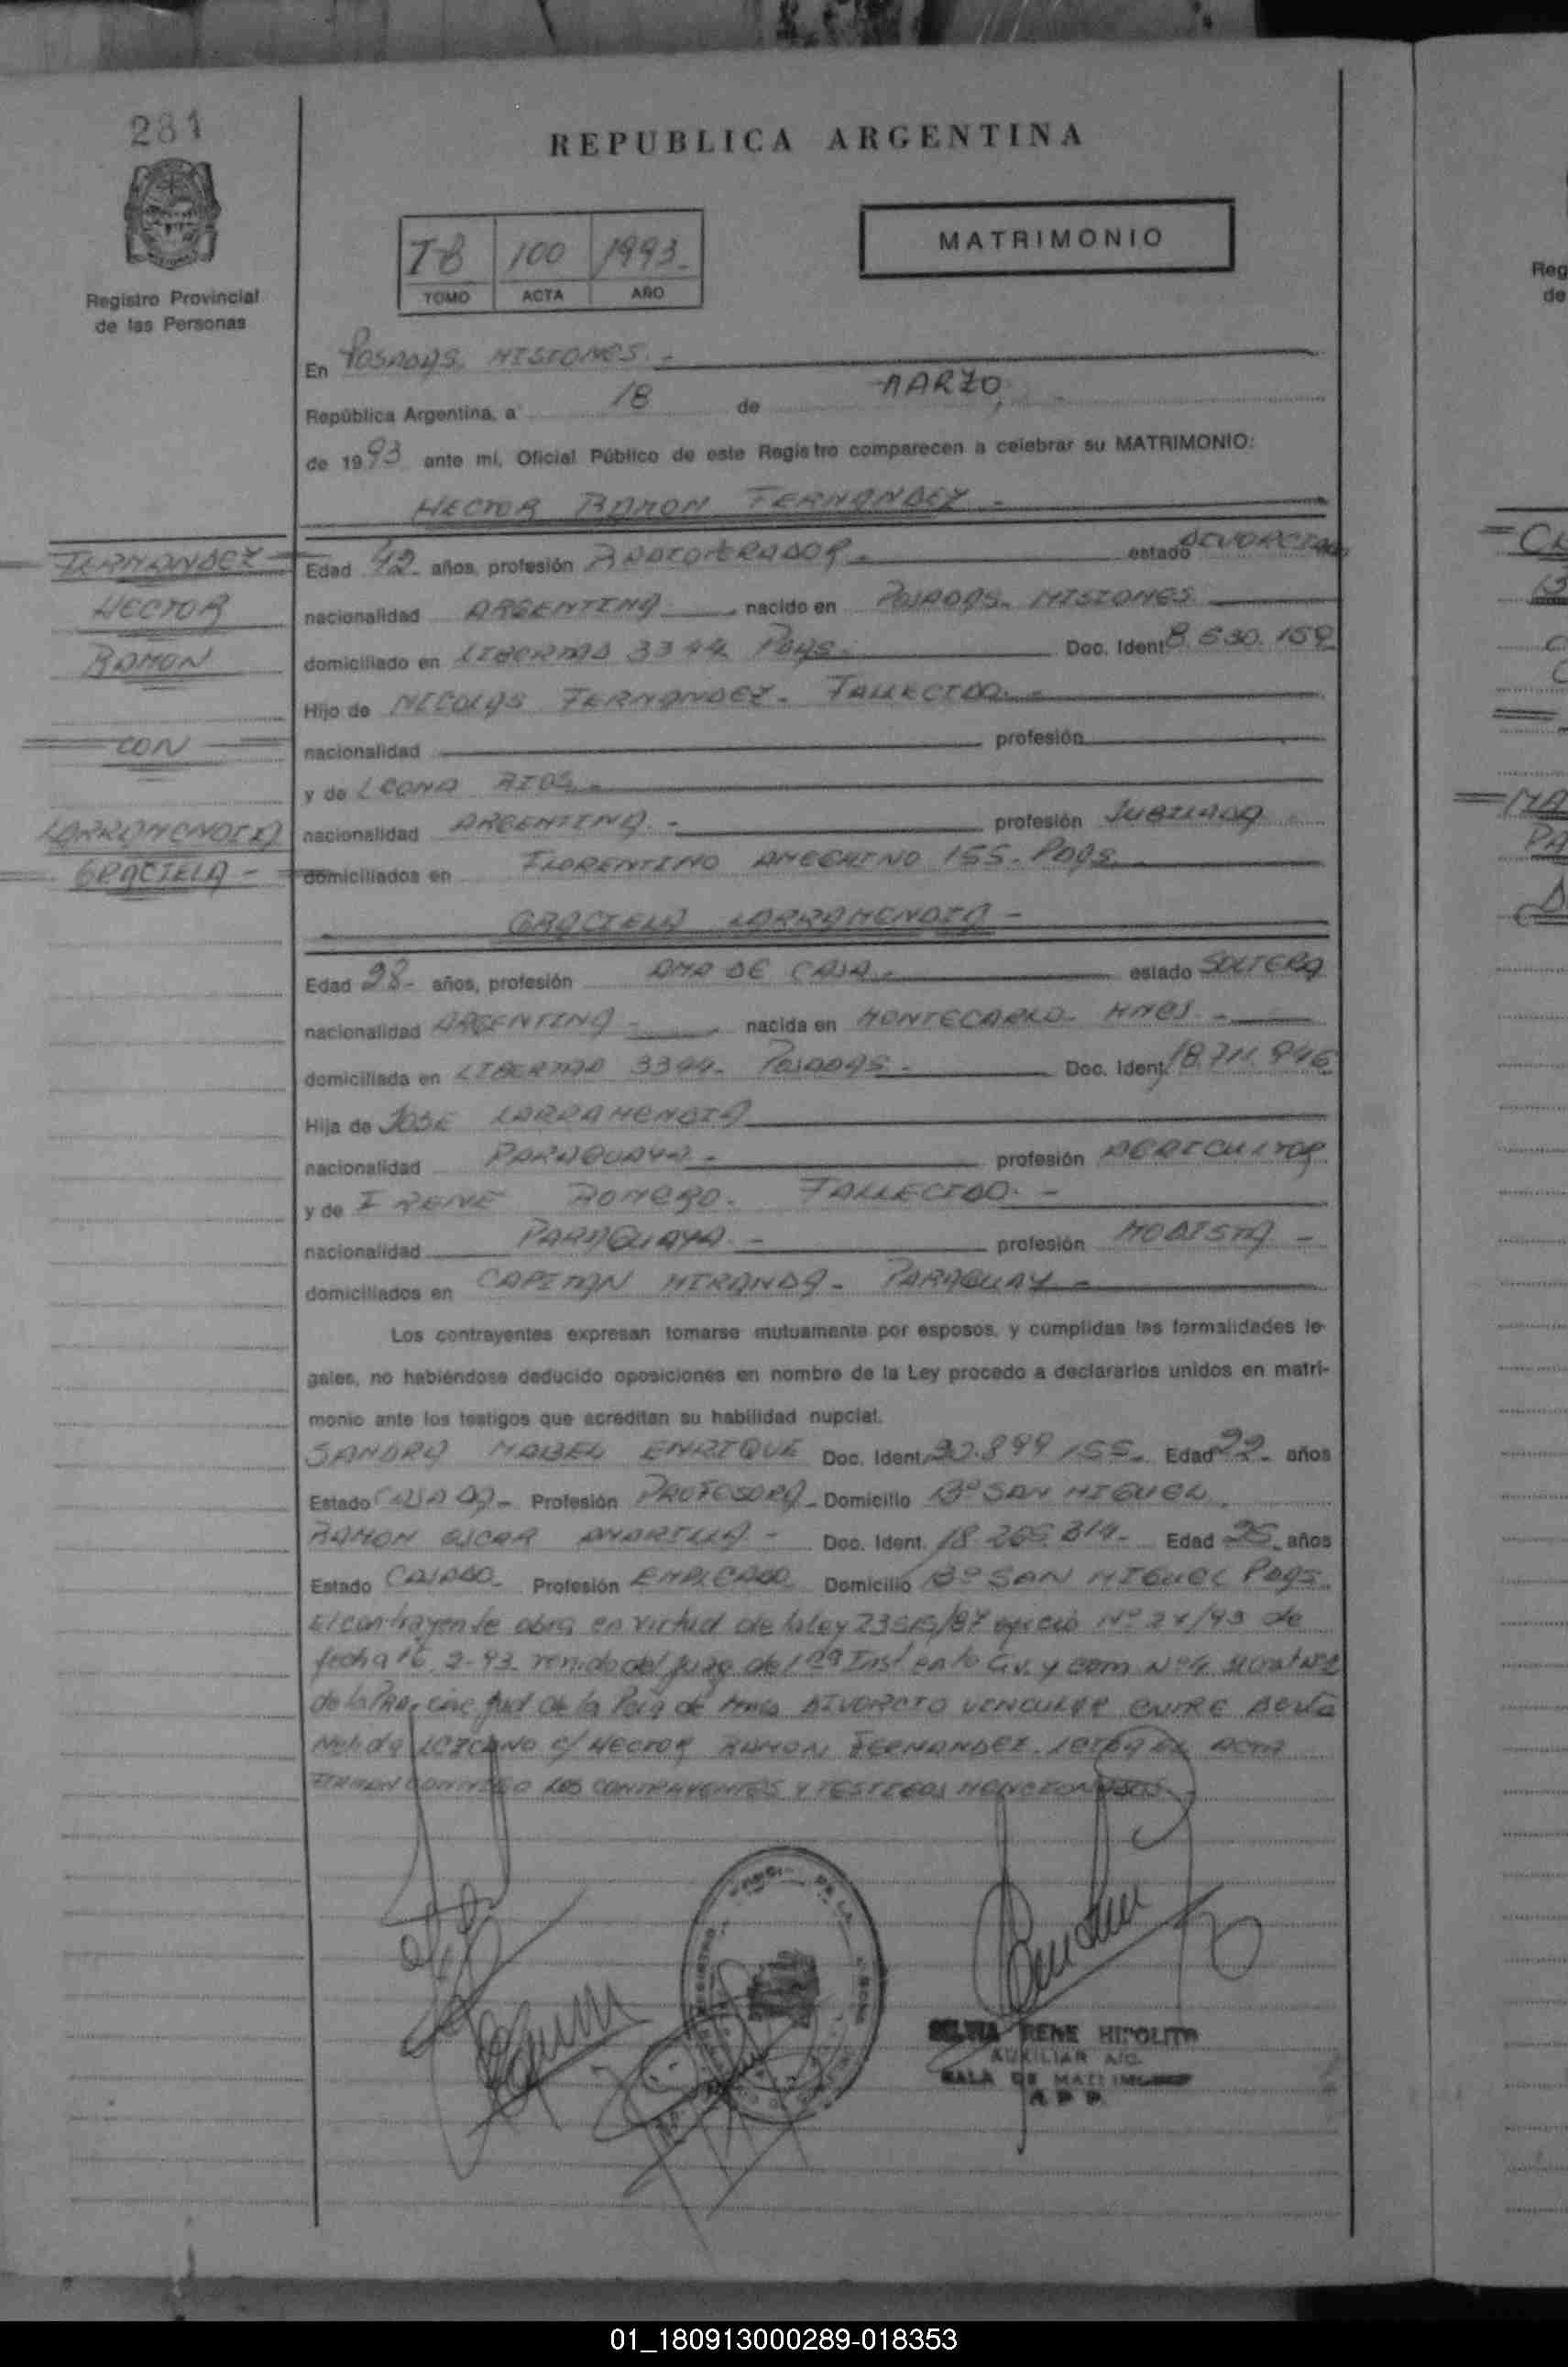 281
REPUBLICA ARGENTINA
T 8 100 1993
TOMO ACTA AÑO
MATRIMONIO
Registro Provincial
de las Personas
En POSADAS MISIONES.-
República Argentina, a 18 de MARZO
de 1993 ante mí, Oficial Público de este Registro comparecen a celebrar su MATRIMONIO:
HECTOR RAMON FERNANDEZ -
FERNANDEZ
HECTOR
RAMON
CON
LARRAMENDIA
GRACIELA -
Edad 42 años, profesión RADIOPERADOR - estado DIVORCIADO
nacionalidad ARGENTINA nacido en POSADAS. MISIONES
domiciliado en LIBERTAD 3344 Pdas. Doc. Ident 8.630.159
Hijo de NICOLAS FERNANDEZ - FALLECIDO. -
nacionalidad profesión
y de LEONA RIOS -
nacionalidad ARGENTINA. - profesión JUBILADA
domiciliados en FLORENTINO AMEGHINO 155. Pdas
GRACIELA LARRAMENDIA -
Edad 28- años, profesión AMA DE CASA - estado SOLTERA
nacionalidad ARGENTINA - nacida en MONTECARLO MNES -
domiciliada en LIBERTAD 3344. POSADAS - Doc. Ident 18.711.946
Hija de JOSE LARRAMENDIA
nacionalidad PARAGUAYA - profesión AGRICULTOR
y de IRENE ROMERO. FALLECIDO. -
nacionalidad PARAGUAYA - profesión MODISTA -
domiciliados en CAPITAN MIRANDA - PARAGUAY -
Los contrayentes expresan tomarse mutuamente por esposos, y cumplidas las formalidades le-
gales, no habiéndose deducido oposiciones en nombre de la Ley procedo a declararlos unidos en matri-
monio ante los testigos que acreditan su habilidad nupcial.
SANDRA MABEL ENRIQUE Doc. Ident. 20.899 155. Edad 22- años
Estado CASADA - Profesión PROFESORA - Domicilio Bº SAN MIGUEL
RAMON OSCAR AMARILLA - Doc. Ident. 18.265.314- Edad 25 años
Estado CASADO - Profesión EMPLEADO Domicilio Bº SAN MIGUEL Pdas
El contrayente obra en virtud de la ley 23515/87 oficio Nº 24/93 de
fecha 16. 2-93 del Juzg de 1ª Inst en lo Civ. y com Nº 4
de la jud de la Pcia de Mnes DIVORCIO VINCULAR ENTRE Berta
Nelida LEZCANO c/ HECTOR RAMON FERNANDEZ. LEIDA EL ACTA
FIRMAN CONMIGO LOS CONTRAYENTES Y TESTIGOS MENCIONADOS
SILVIA RENE HIPOLITO
AUXILIAR A/C.
SALA DE MATRIMONIO
R. P. P.
01_180913000289-018353